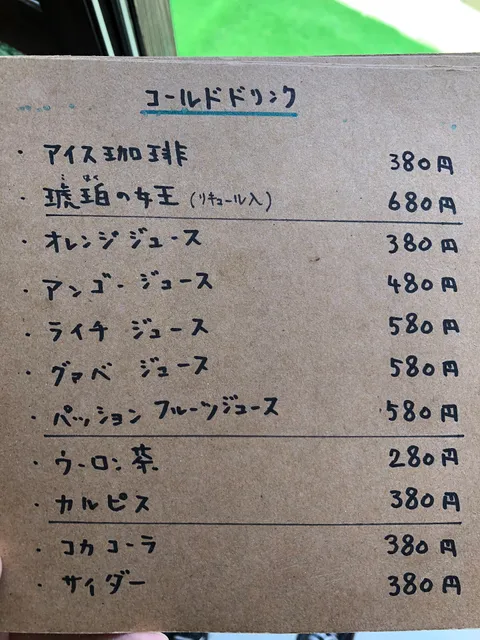 コールドドリンク
・アイス珈琲 380円
こはく
・琥珀の女王(リキュール入) 680円
・オレンジジュース 380円
・アンゴージュース 480円
・ライチジュース 580円
・グァベジュース 580円
・パッションフルーツジュース 580円
・ウーロン茶 280円
・カルピス 380円
・コカコーラ 380円
・サイダー 380円